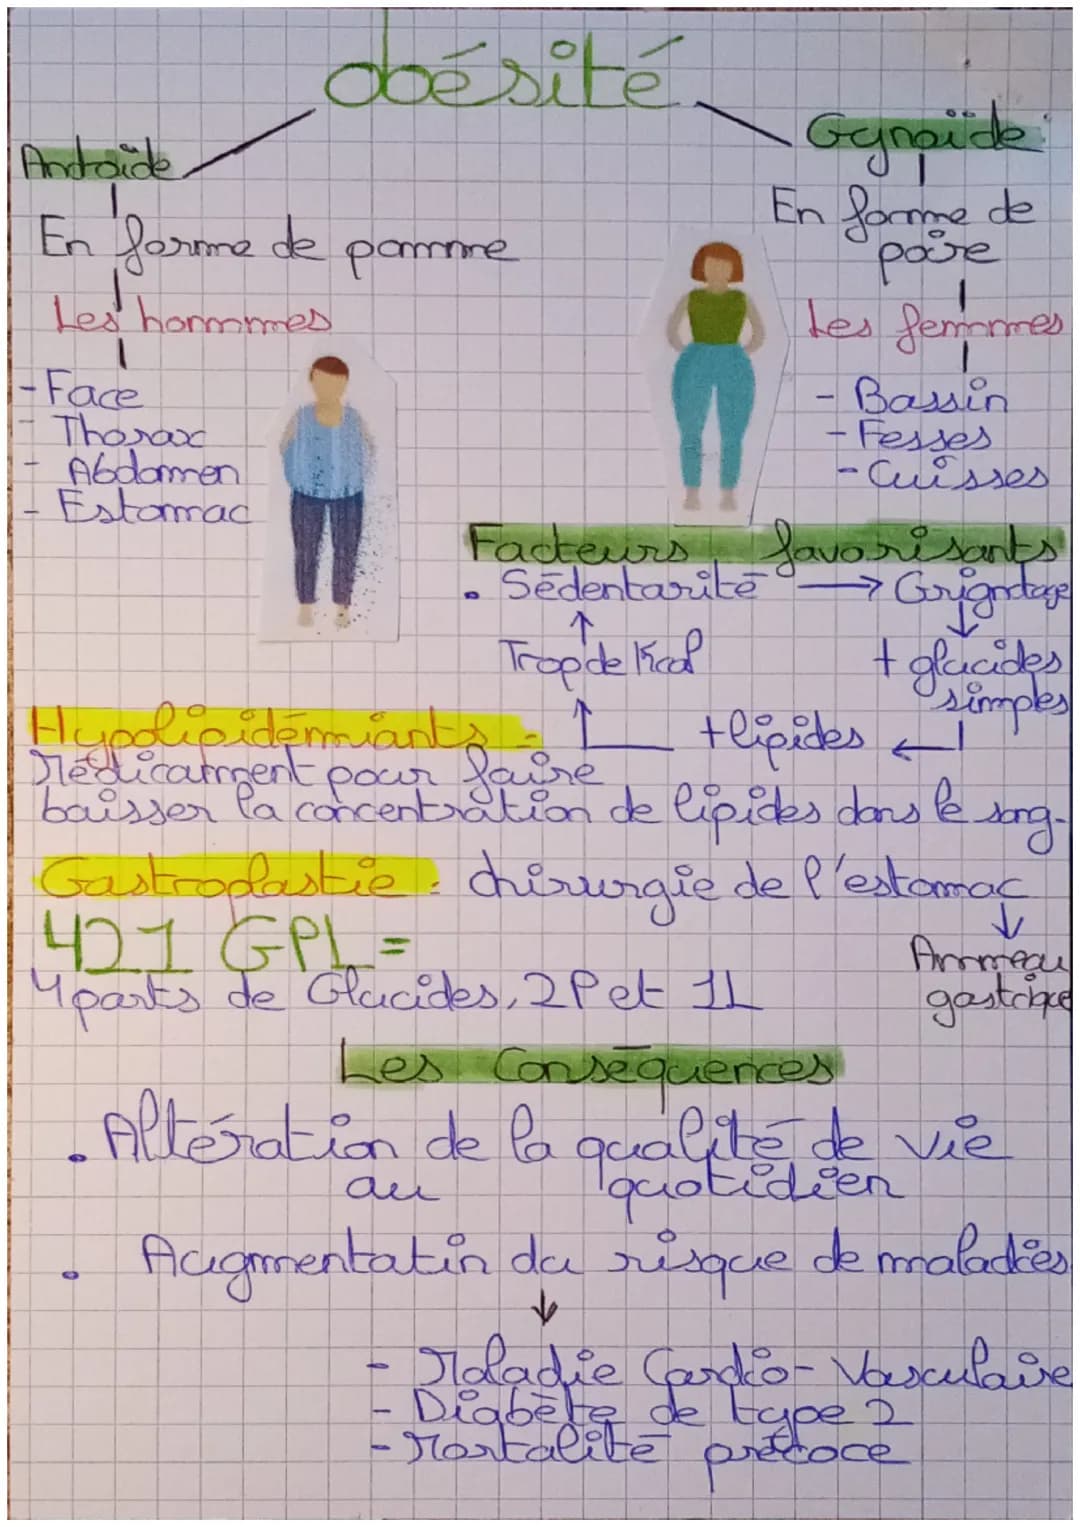 obésité
Androïde
En forme de pomme
Les hommes
- Face
- Thorax
- Abdomen
- Estomac
Gynoïde
En forme de
poire
Les femmes
- Bassin
- Fesses
- Cuisses
Facteurs favorisants
• Sédentarité → Grignotage
↓
+ glucides
simples
+ lipides ←
↑
Trop de Kcal
↑
Hypolipidémiants :
Médicament pour faire
baisser la concentration de lipides dans le sang.
Gastroplastie : chirurgie de l'estomac
↓
Anneau
gastrique
421 GPL =
4 parts de Glucides, 2P et 1L
Les Conséquences
• Altération de la qualité de vie
au quotidien
• Augmentatin du risque de maladies
↓
- Maladie Cardio-Vasculaire
- Diabète de type 2
- Mortalité précoce